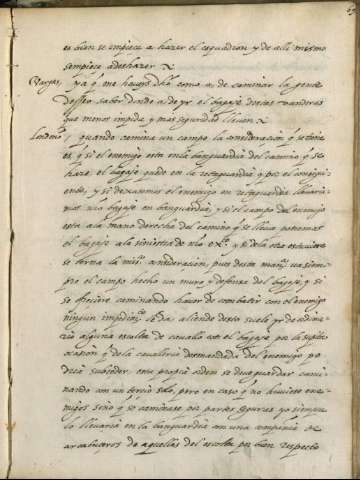 es bien se empiece a hazer el esquadron y de alli mismo
se empiece a deshazer
Vargas, ya q̃ me haveys dho como a de caminar la gente
desseo saber donde a de yr el bagaje destas vanderas
que menos impida y mas seguridad lleven
Londoño, quando camina un campo la consideracion q̃ se tiene
es q̃ si el enemigo esta en la banguardia del camino q̃ se
haze el bagaje quede en la retaguardia y por el consigui-
ente, y si dexamos el enemigo en retaguardia llevare-
mos nro bagaje en banguardia, y si el campo del enemigo
esta a la mano derecha del camino q̃ se lleva pornemos
el bagaje a la siniestra de nro exto, y si a la otra estuviere
se terna la misma consideracion, pues desta manera va siem-
pre el campo hecho un muro y defensa del bagaje y si
se ofreciere caminando haver de combatir con el enemigo
ningun impedimto le da, allende desto suele yr de ordina-
rio alguna escolta de cavallos con el bagaje por la supita
ocasion q̃ de la cavalleria desmandada del enemigo po-
dria subceder, esta propia orden se deve guardar cami-
nando con un tercio solo, pero en caso q̃ no huviere ene-
migos sino q̃ se caminase por partes seguras yo siempre
lo llevaria en la banguardia con una compañia de
arcabuzeros de aquellas del escolta por buen respecto